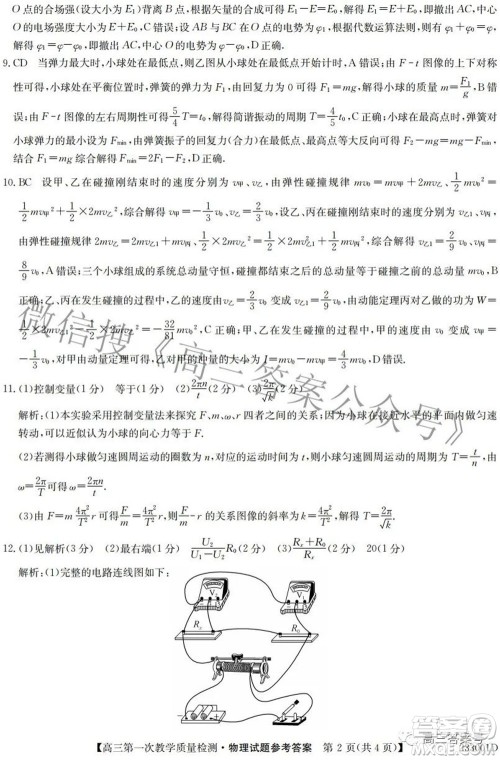 O点的合场强(设大小为E₁)背离B点,根据矢量的合成可得E₁-E=E₀,解得E₁=E+E₀,即撤出AC,中心
O的电场强度大小为E+E₀,C错误;设AB与BC在O点的电势为φ₁=φ-φ₀,根据代数运算法则,则有φ₁+φ₀=φ,
解得φ₁=φ-φ₀,即撤出AC,中心O的电势为φ-φ₀,D正确.
9.CD 当弹力最大时,小球处在最低点,则乙图从小球处在最低点开始计时,A错误;由F-t图像的上下对称
性可得,小球处在平衡位置时,弹簧的弹力为F₁,由回复力为0可得F₁=mg,解得小球的质量m=F₁/g,B错
误;由F-t图像的左右周期性可得5/4T=t₀,解得简谐振动的周期为T=4/5t₀,C正确;小球在最高点时,弹簧对
小球弹力的最小设为Fmin,由弹簧振子的回复力(合力)在最低点、最高点等大反向可得F₂-mg=mg-Fmin,
结合F₁=mg综合解得Fmin=2F₁-F₂,D正确.
10.BC 设甲、乙在碰撞刚结束时的速度分别为v甲、v乙,由弹性碰撞规律mv₀=mv甲+2mv乙、1/2mv₀²=
1/2mv甲²+1/2×2mv乙²,综合解得v甲=-1/3v₀、v乙=2/3v₀,设乙、丙在碰撞刚结束时的速度分别为v乙1、v丙,
由弹性碰撞规律2mv乙=2mv乙1+mv丙、1/2×2mv乙²=1/2×2mv乙1²+1/2mv丙²,综合解得v乙1=2/9v₀、v丙=
8/9v₀,A错误;三个小球组成的系统总动量守恒,碰撞都结束之后的总动量等于碰撞之前甲的动量mv₀,B
正确;乙、丙在发生碰撞的过程中,乙的速度由v乙=2/3v₀变成v乙1=2/9v₀,由动能定理丙对乙做的功为W=
1/2×2mv乙1²-1/2×2mv乙²=-32/81mv₀²,C正确;甲、乙在发生碰撞的过程中,甲的速度由v₀变成v甲=
-1/3v₀,对甲由动量定理可得,乙对甲的冲量为I=mv甲-mv₀=-4/3mv₀,D错误.
11.(1)控制变量(1分) 等于(1分) (2)2πn/t(2分) (3)2π/√k(2分)
解析:(1)本实验采用控制变量法来探究F、m、ω、r四者之间的关系;因小球在接近水平的平面内做匀速
转动,可以近似认为小球的向心力等于F.
(2)若测得小球做匀速圆周运动的圈数为n,对应的时间为t,则小球匀速圆周运动的周期为T=t/n,由
ω=2π/T可得ω=2πn/t.
(3)由F=m4π²/T²r可得F/m=4π²/T²r,则F/m-r的关系图像的斜率为k=4π²/T²,解得T=2π/√k.
12.(1)见解析(3分) (2)最右端(1分) U₂/(U₁-U₂)R₀(2分) (3)(Rₓ+R₀)/Rₓ(2分) 20(1分)
解析:(1)完整的电路连线图如下:
V
V
Rₓ
R₀
微信搜《高三答案公众号》
【高三第一次教学质量检测·物理试题参考答案 第2页(共4页)】
高三答案号